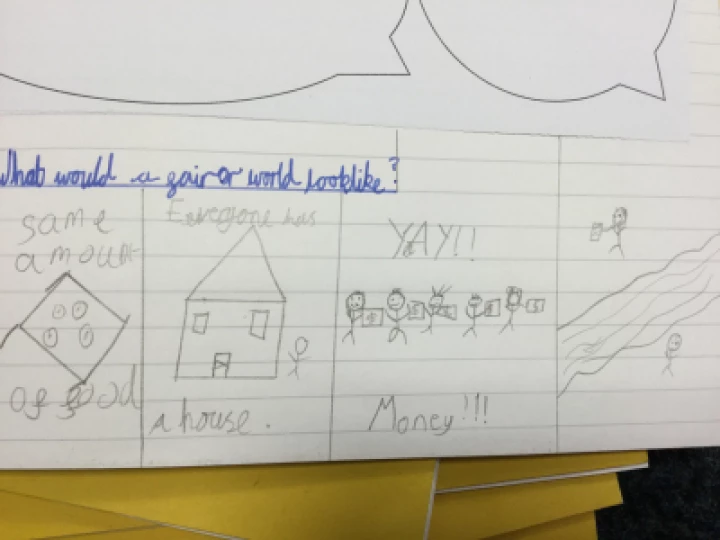 What would a fairer world look like?
same
amount
of food
Everyone has
a house.
YAY!!
Money!!!